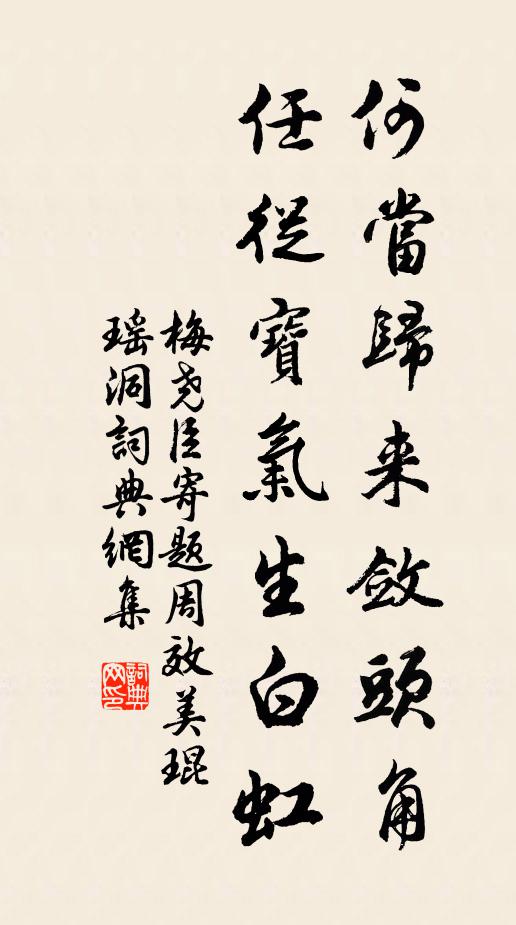 何當歸来斂頭角
任從寶氣生白虹
梅尧臣寄題周效美琨
瑶洞詞典網集
詞典
网印